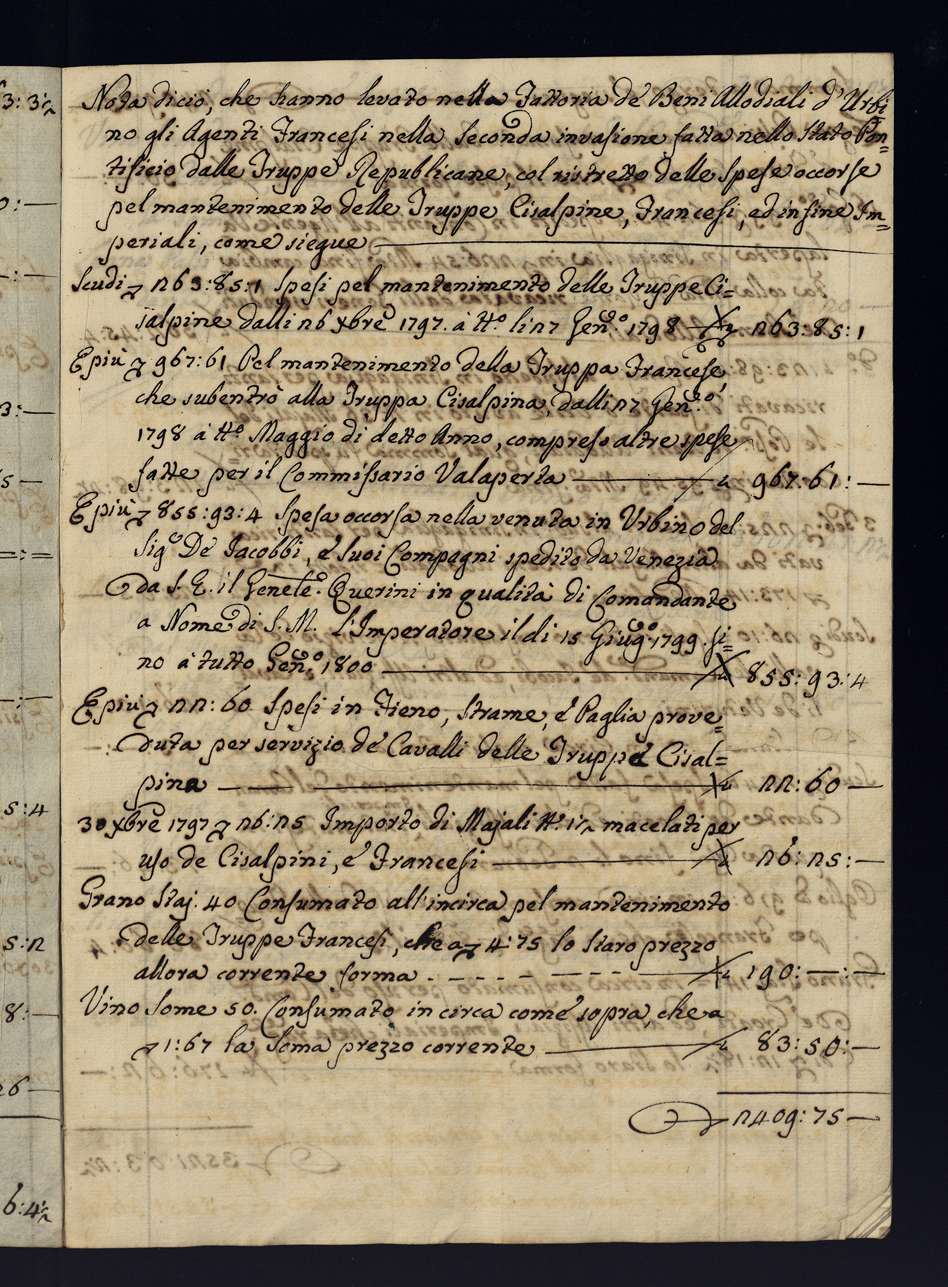 Nota di ciò, che hanno levato nella Fattoria de' Beni Allodiali d'Urbi=
no gli Agenti Francesi nella Seconda invasione fatta nello Stato Pon=
tificio dalle Truppe Republicane, col ristretto delle Spese occorse
pel mantenimento delle Truppe Cisalpine, Francesi, ed infine Im=
periali, come siegue
Scudi 263:85:1 Spesi pel mantenimento delle Truppe Ci=
salpine dalli 26 Xbre 1797. à tto li 27 Gen.o 1798 — 263:85:1
E più 967:61 Pel mantenimento della Truppa Francese
che subentrò alla Truppa Cisalpina, dalli 27 Gen.o
1798 à tto Maggio di detto Anno, compreso altre spese
fatte per il Commissario Valaperta — 967:61:—
E più 855:93:4 Spesa occorsa nella venuta in Urbino del
Sig.e De Jacobbi, e suoi Compagni spedito da Venezia
da S. E. il Genele. Querini in qualità di Comandante
a Nome di S. M. L'Imperatore il di 15 Giug.o 1799. si=
no à tutto Gen.o 1800 — 855:93:4
E più 22:60 Spesi in Fieno, Strame, e Paglia prove=
duta per servizio de' Cavalli delle Truppe Cisal=
pine — 22:60 —
30 Xbre 1797 26:25 Importo di Majali tto 1½ macelati per
uso de Cisalpini, e Francesi — 26:25:—
Grano Staj. 40 Consumato all'incirca pel mantenimento
delle Truppe Francesi, che a 4:75 lo Staro prezzo
allora corrente forma — 190:—:—
Vino Some 50. Consumato in circa come sopra, che a
1:67 la Soma prezzo corrente — 83:50:—
2409:75 —